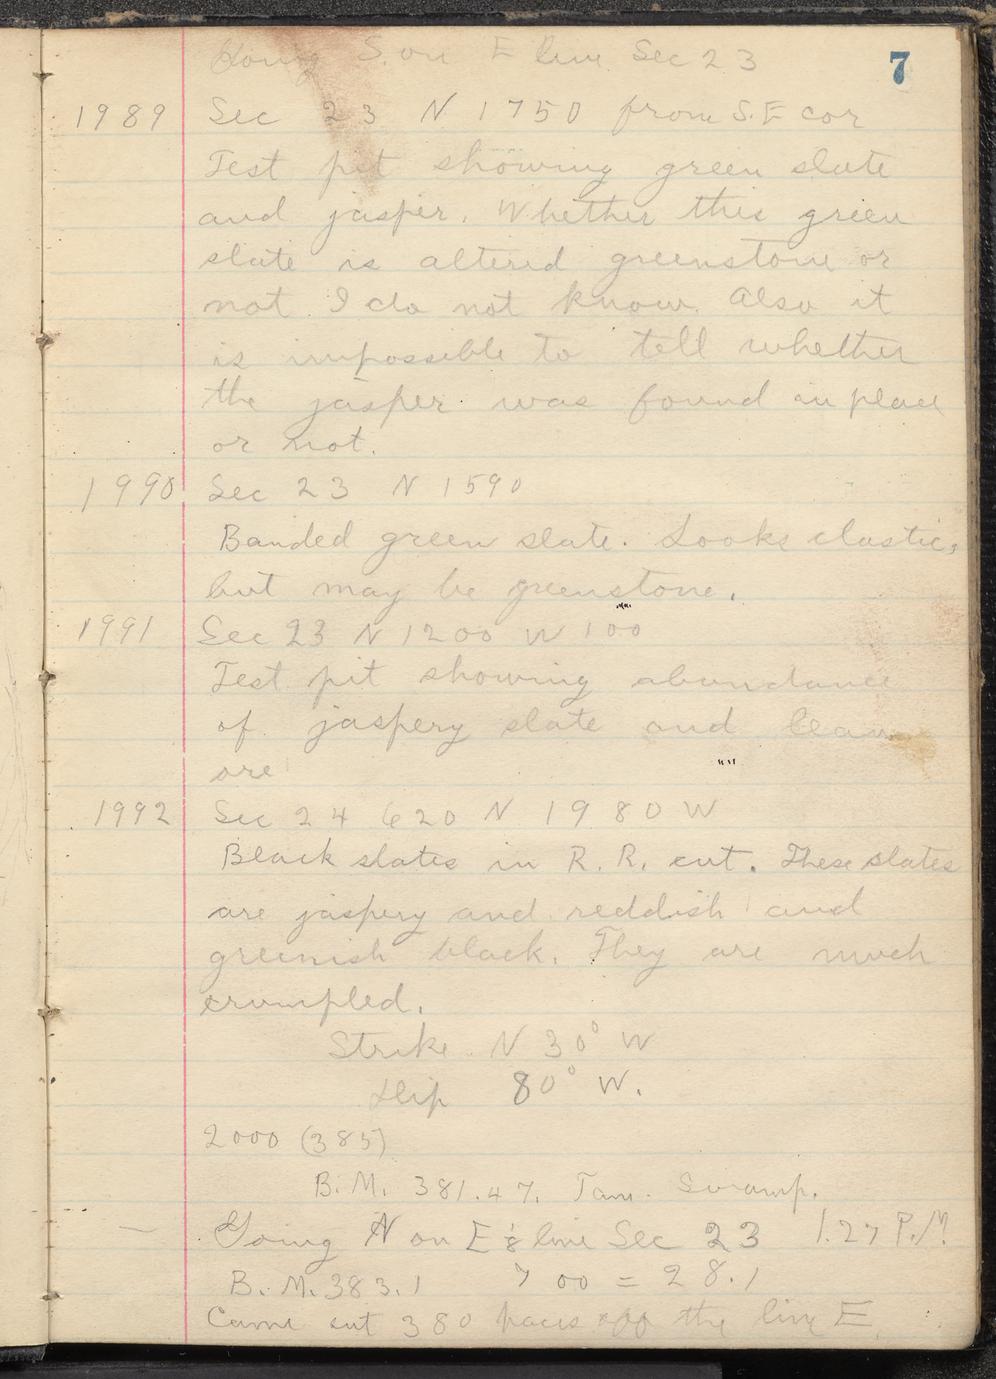 Going S. on E line Sec 23
7
1989 Sec 23 N 1750 from S.E cor
Test pit showing green slate
and jasper. Whether this green
slate is altered greenstone or
not I do not know. Also it
is impossible to tell whether
the jasper was found in place
or not.
1990 Sec 23 N 1590
Banded green slate. Looks clastic,
but may be greenstone.
1991 Sec 23 N 1200 W 100
Test pit showing abundance
of jaspery slate and lean
ore
1992 Sec 24 620 N 1980 W
Black slates in R. R. cut. These slates
are jaspery and reddish and
greenish black. They are much
crumpled.
Strike N 30° W
Dip 80° W.
2000 (385)
B. M. 381.47. Tam. Swamp.
Going N on E ⅛ line Sec 23 1.27 P.M.
B. M. 383.1 700 = 28.1
Came out 380 paces off the line E.